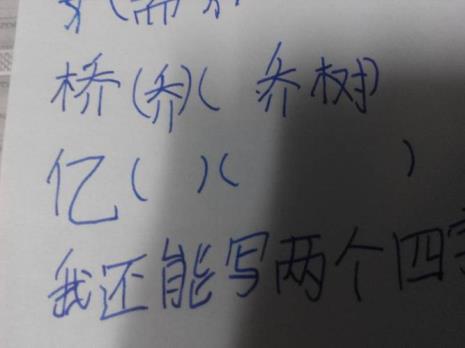 桥(乔)(乔树)
亿( )( )
我还能写两个四